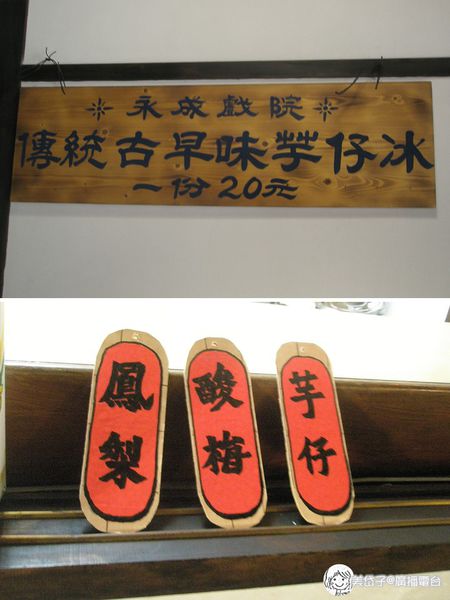 永成戲院
傳統古早味芋仔冰
一份20元
鳳梨
酸梅
芋仔
美岱子@廣播電台